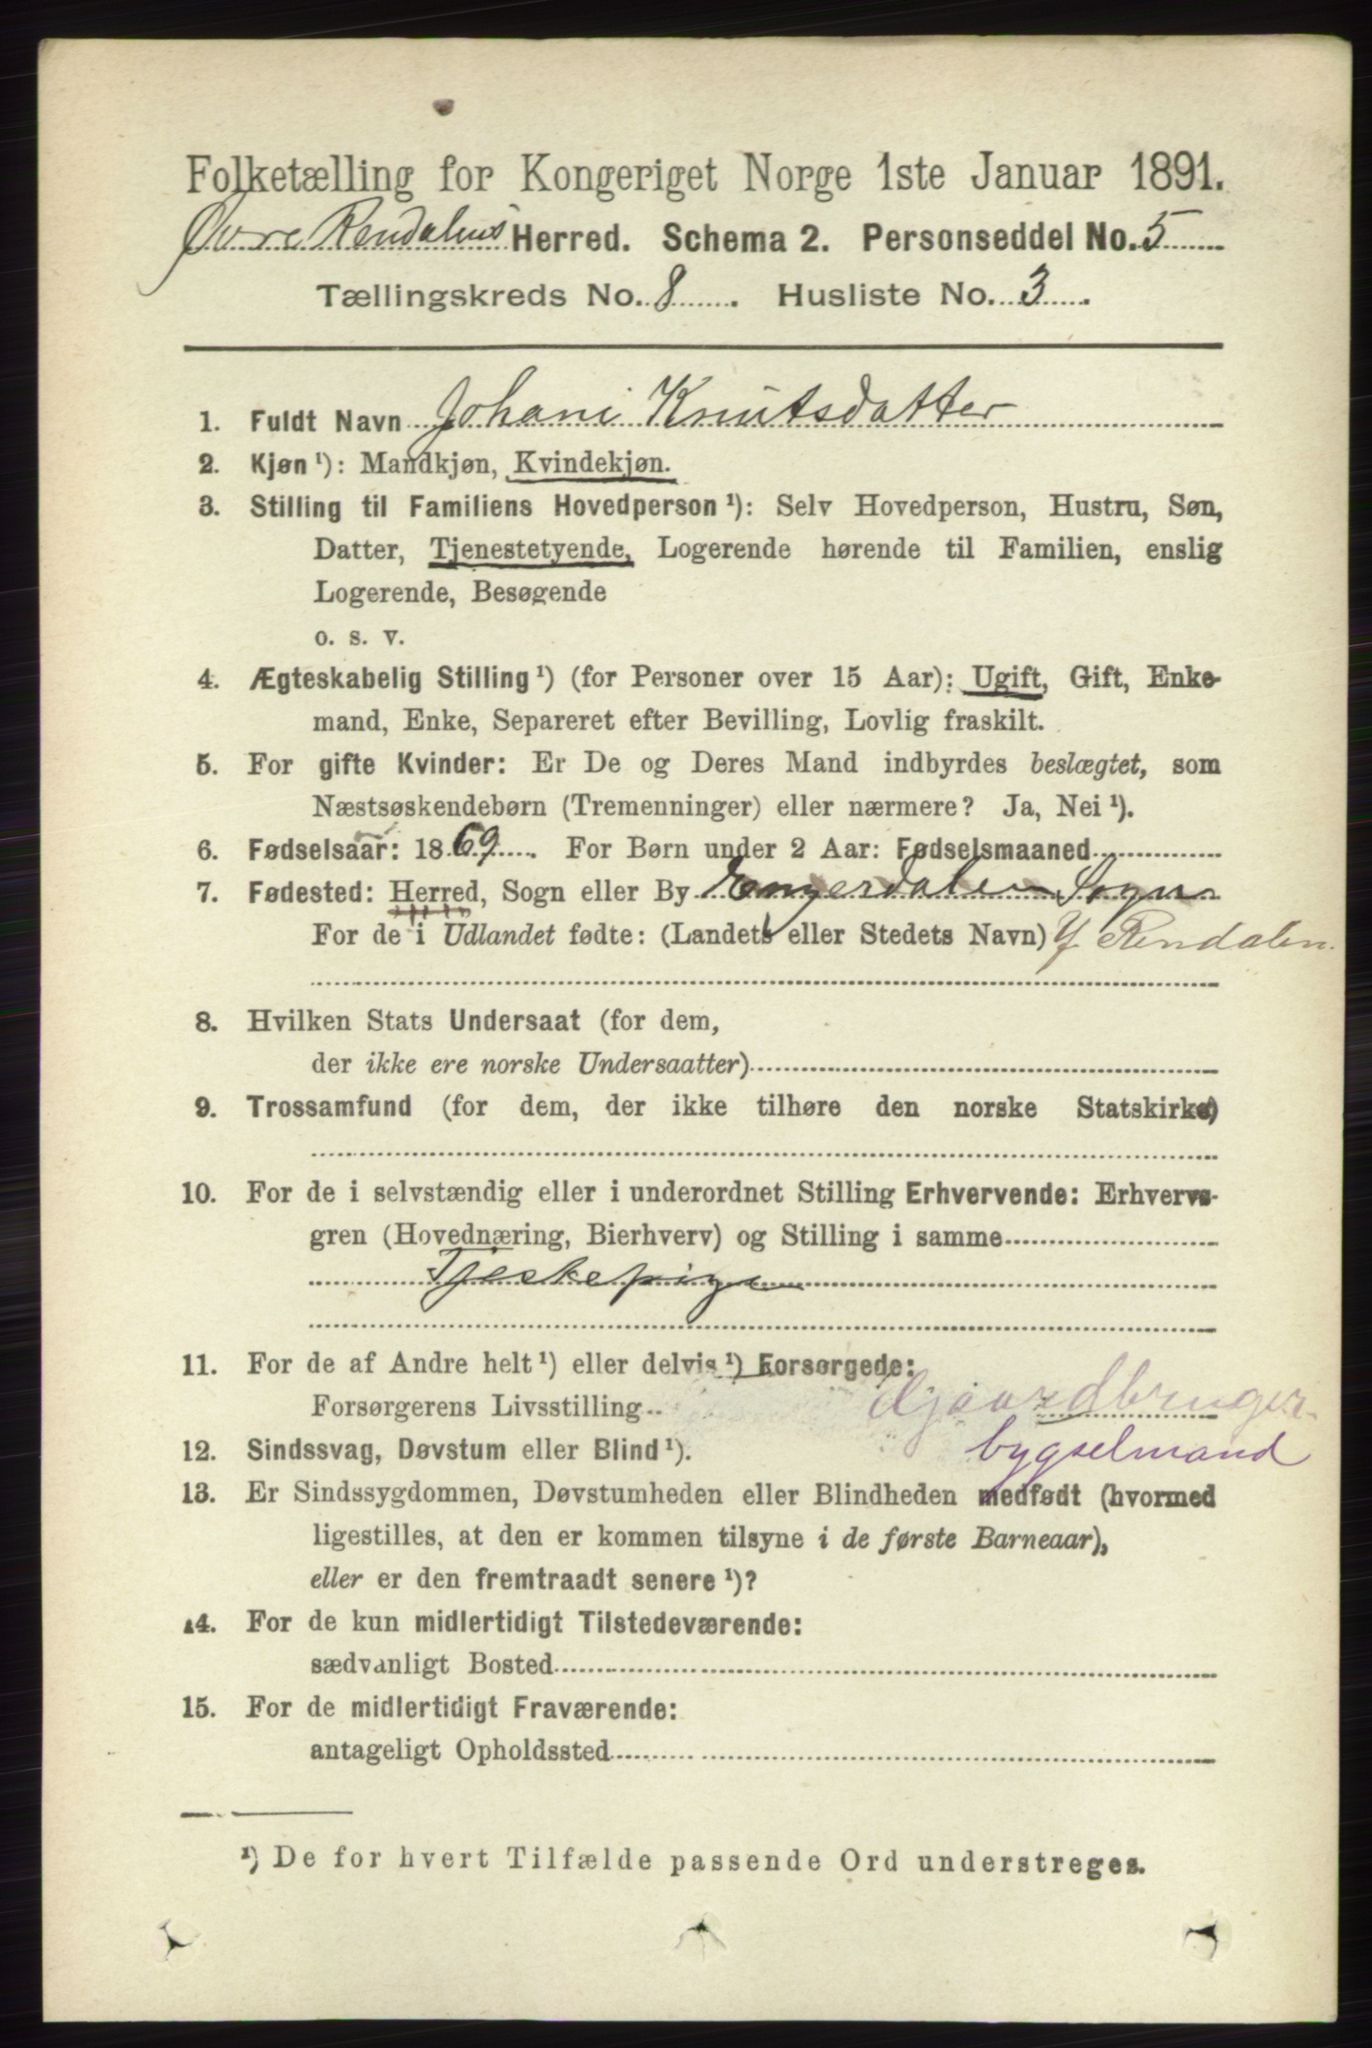 Folketælling for Kongeriget Norge 1ste Januar 1891.
Øvre Rendalens Herred. Schema 2. Personseddel No. 5
Tællingskreds No. 8. Husliste No. 3.
1. Fuldt Navn Johani Knutsdatter
2. Kjøn ¹): Mandkjøn, Kvindekjøn.
3. Stilling til Familiens Hovedperson ¹): Selv Hovedperson, Hustru, Søn,
Datter, Tjenestetyende, Logerende hørende til Familien, enslig
Logerende, Besøgende
o. s. v.
4. Ægteskabelig Stilling ¹) (for Personer over 15 Aar): Ugift, Gift, Enke-
mand, Enke, Separeret efter Bevilling, Lovlig fraskilt.
5. For gifte Kvinder: Er De og Deres Mand indbyrdes beslægtet, som
Næstsøskendebørn (Tremenninger) eller nærmere? Ja, Nei ¹).
6. Fødselsaar: 1869. For Børn under 2 Aar: Fødselsmaaned
7. Fødested: Herred, Sogn eller By Engerdalen Sogn
For de i Udlandet fødte: (Landets eller Stedets Navn) Y. Rendalen.
8. Hvilken Stats Undersaat (for dem,
der ikke ere norske Undersaatter)
9. Trossamfund (for dem, der ikke tilhøre den norske Statskirke)
10. For de i selvstændig eller i underordnet Stilling Erhvervende: Erhvervs-
gren (Hovednæring, Bierhverv) og Stilling i samme
Tjeskepige
11. For de af Andre helt ¹) eller delvis ¹) Forsørgede:
Forsørgerens Livsstilling Gjaardbruger
12. Sindssvag, Døvstum eller Blind ¹). bygselmand
13. Er Sindssygdommen, Døvstumheden eller Blindheden medfødt (hvormed
ligestilles, at den er kommen tilsyne i de første Barneaar),
eller er den fremtraadt senere ¹)?
14. For de kun midlertidigt Tilstedeværende:
sædvanligt Bosted
15. For de midlertidigt Fraværende:
antageligt Opholdssted
¹) De for hvert Tilfælde passende Ord understreges.